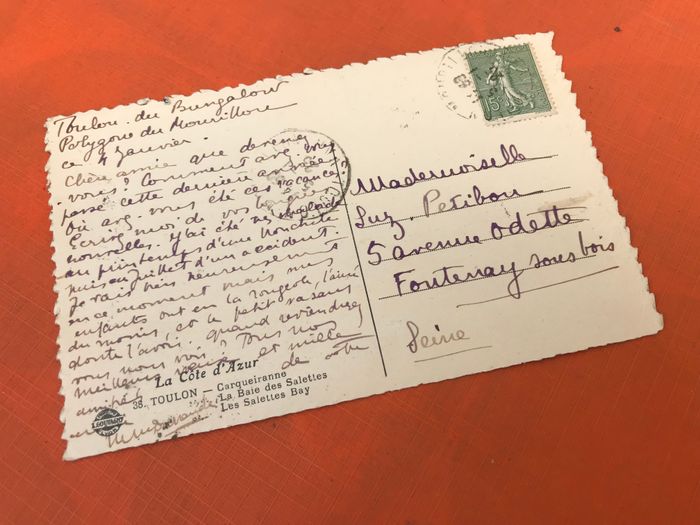 Toulon du Bungalow
Polygone du Mourillon
ce 4 Janvier.
Chère amie que devenez
vous? Comment avez vous
passé cette dernière année
Où avez vous été ces vacances
Ecrivez moi de vos
nouvelles. J'ai été malade
au printemps d'une bronchite
puis en juillet d'un accident.
Je vais bien heureusement
en ce moment mais mes
enfants ont eu la rougeole, l'ainé
du moins, et le petit va sans
doute l'avoir. quand reviendrez
vous nous voir? Tous nos
meilleurs vœux et mille
amitiés de votre
La Côte d'Azur
38. TOULON — Carqueiranne
La Baie des Salettes
Les Salettes Bay
Mademoiselle
Suz. Petibon
5 avenue Odette
Fontenay sous bois
Seine
15